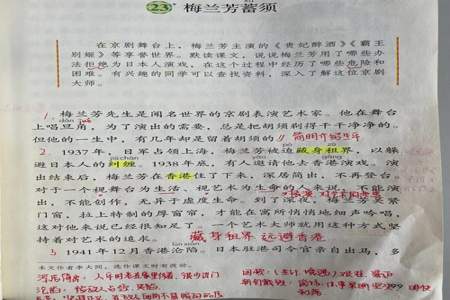 23* 梅兰芳蓄须
在京剧舞台上，梅兰芳主演的《贵妃醉酒》《霸王
别姬》等享誉世界。默读课文，说说梅兰芳用了哪些办
法拒绝为日本人演戏，在这个过程中经历了哪些危险和
困难。有兴趣的同学可以查找资料，深入了解这位京剧
大师。
1 梅兰芳先生是闻名世界的京剧表演艺术家。他在舞台
上唱旦角，为了演出的需要，总是把胡须剃得干干净净的。
但他的一生中，有几年却是留着胡须的。// 简明介绍生平
2 1937年，日军占领上海，梅兰芳被迫藏身租界，以躲
避日本人的纠缠。1938年底，有人邀请他去香港演戏。演
出结束后，梅兰芳在香港住了下来，深居简出，不再登台。
对于一个视舞台为生活、视艺术为生命的人来说，不能演
出，不能创作，无异于虚度生命。到了深夜，梅兰芳关紧
门窗，拉上特制的厚窗帘，才能在寓所悄悄地细声吟唱，
这对他来说已经很知足了。一个艺术大师就用这种方式坚
持着对艺术的追求。 藏身租界 远避香港
3 1941年12月香港沦陷。日本驻港司令官亲自出马，多
本文作者李大同，选作课文时有改动。